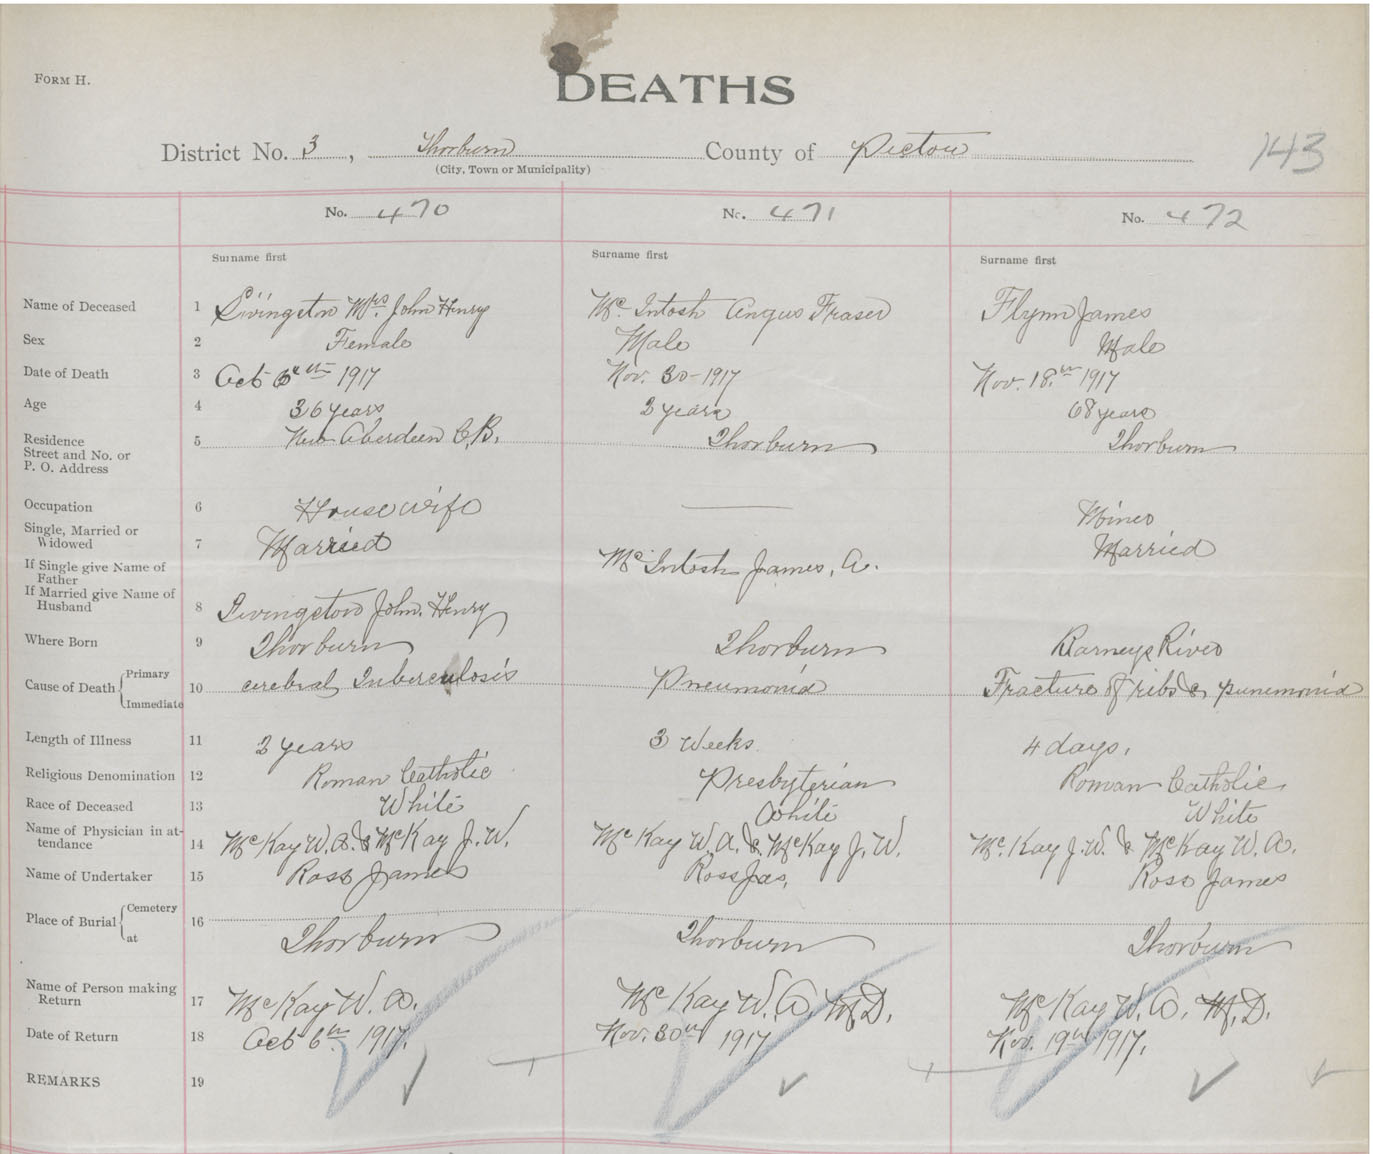 FORM H.
DEATHS
District No. 3, Thorburn County of Pictou 143
(City, Town or Municipality)
No. 470 No. 471 No. 472
Surname first Surname first Surname first
Name of Deceased 1 Livingston Mrs. John Henry Mc Intosh Angus Fraser Flynn James
Sex 2 Female Male Male
Date of Death 3 Oct 6th 1917 Nov. 30-1917 Nov. 18th 1917
Age 4 36 years 2 years 68 years
Residence
Street and No. or
P. O. Address 5 New Aberdeen C.B. Thorburn Thorburn
Occupation 6 Housewife —— Miner
Single, Married or
Widowed 7 Married Married
If Single give Name of
Father Mc Intosh James, A.
If Married give Name of
Husband 8 Livingston John. Henry
Where Born 9 Thorburn Thorburn Barneys River
Cause of Death { Primary
Immediate 10 cerebral Tuberculosis Pneumonia Fracture of ribs & punemonia
Length of Illness 11 2 years 3 Weeks 4 days.
Religious Denomination 12 Roman Catholic Presbyterian Roman Catholic
Race of Deceased 13 White White White
Name of Physician in at-
tendance 14 McKay W.A. & McKay J.W. McKay W.A. & McKay J.W. Mc.Kay J.W. & McKay W.A.
Name of Undertaker 15 Ross James Ross Jas. Ross James
Place of Burial { Cemetery
at 16 Thorburn Thorburn Thorburn
Name of Person making
Return 17 McKay W.A. McKay W.A. M.D. McKay W.A. M.D.
Date of Return 18 Oct 6th 1917. Nov. 30th 1917 Nov. 19th 1917.
REMARKS 19